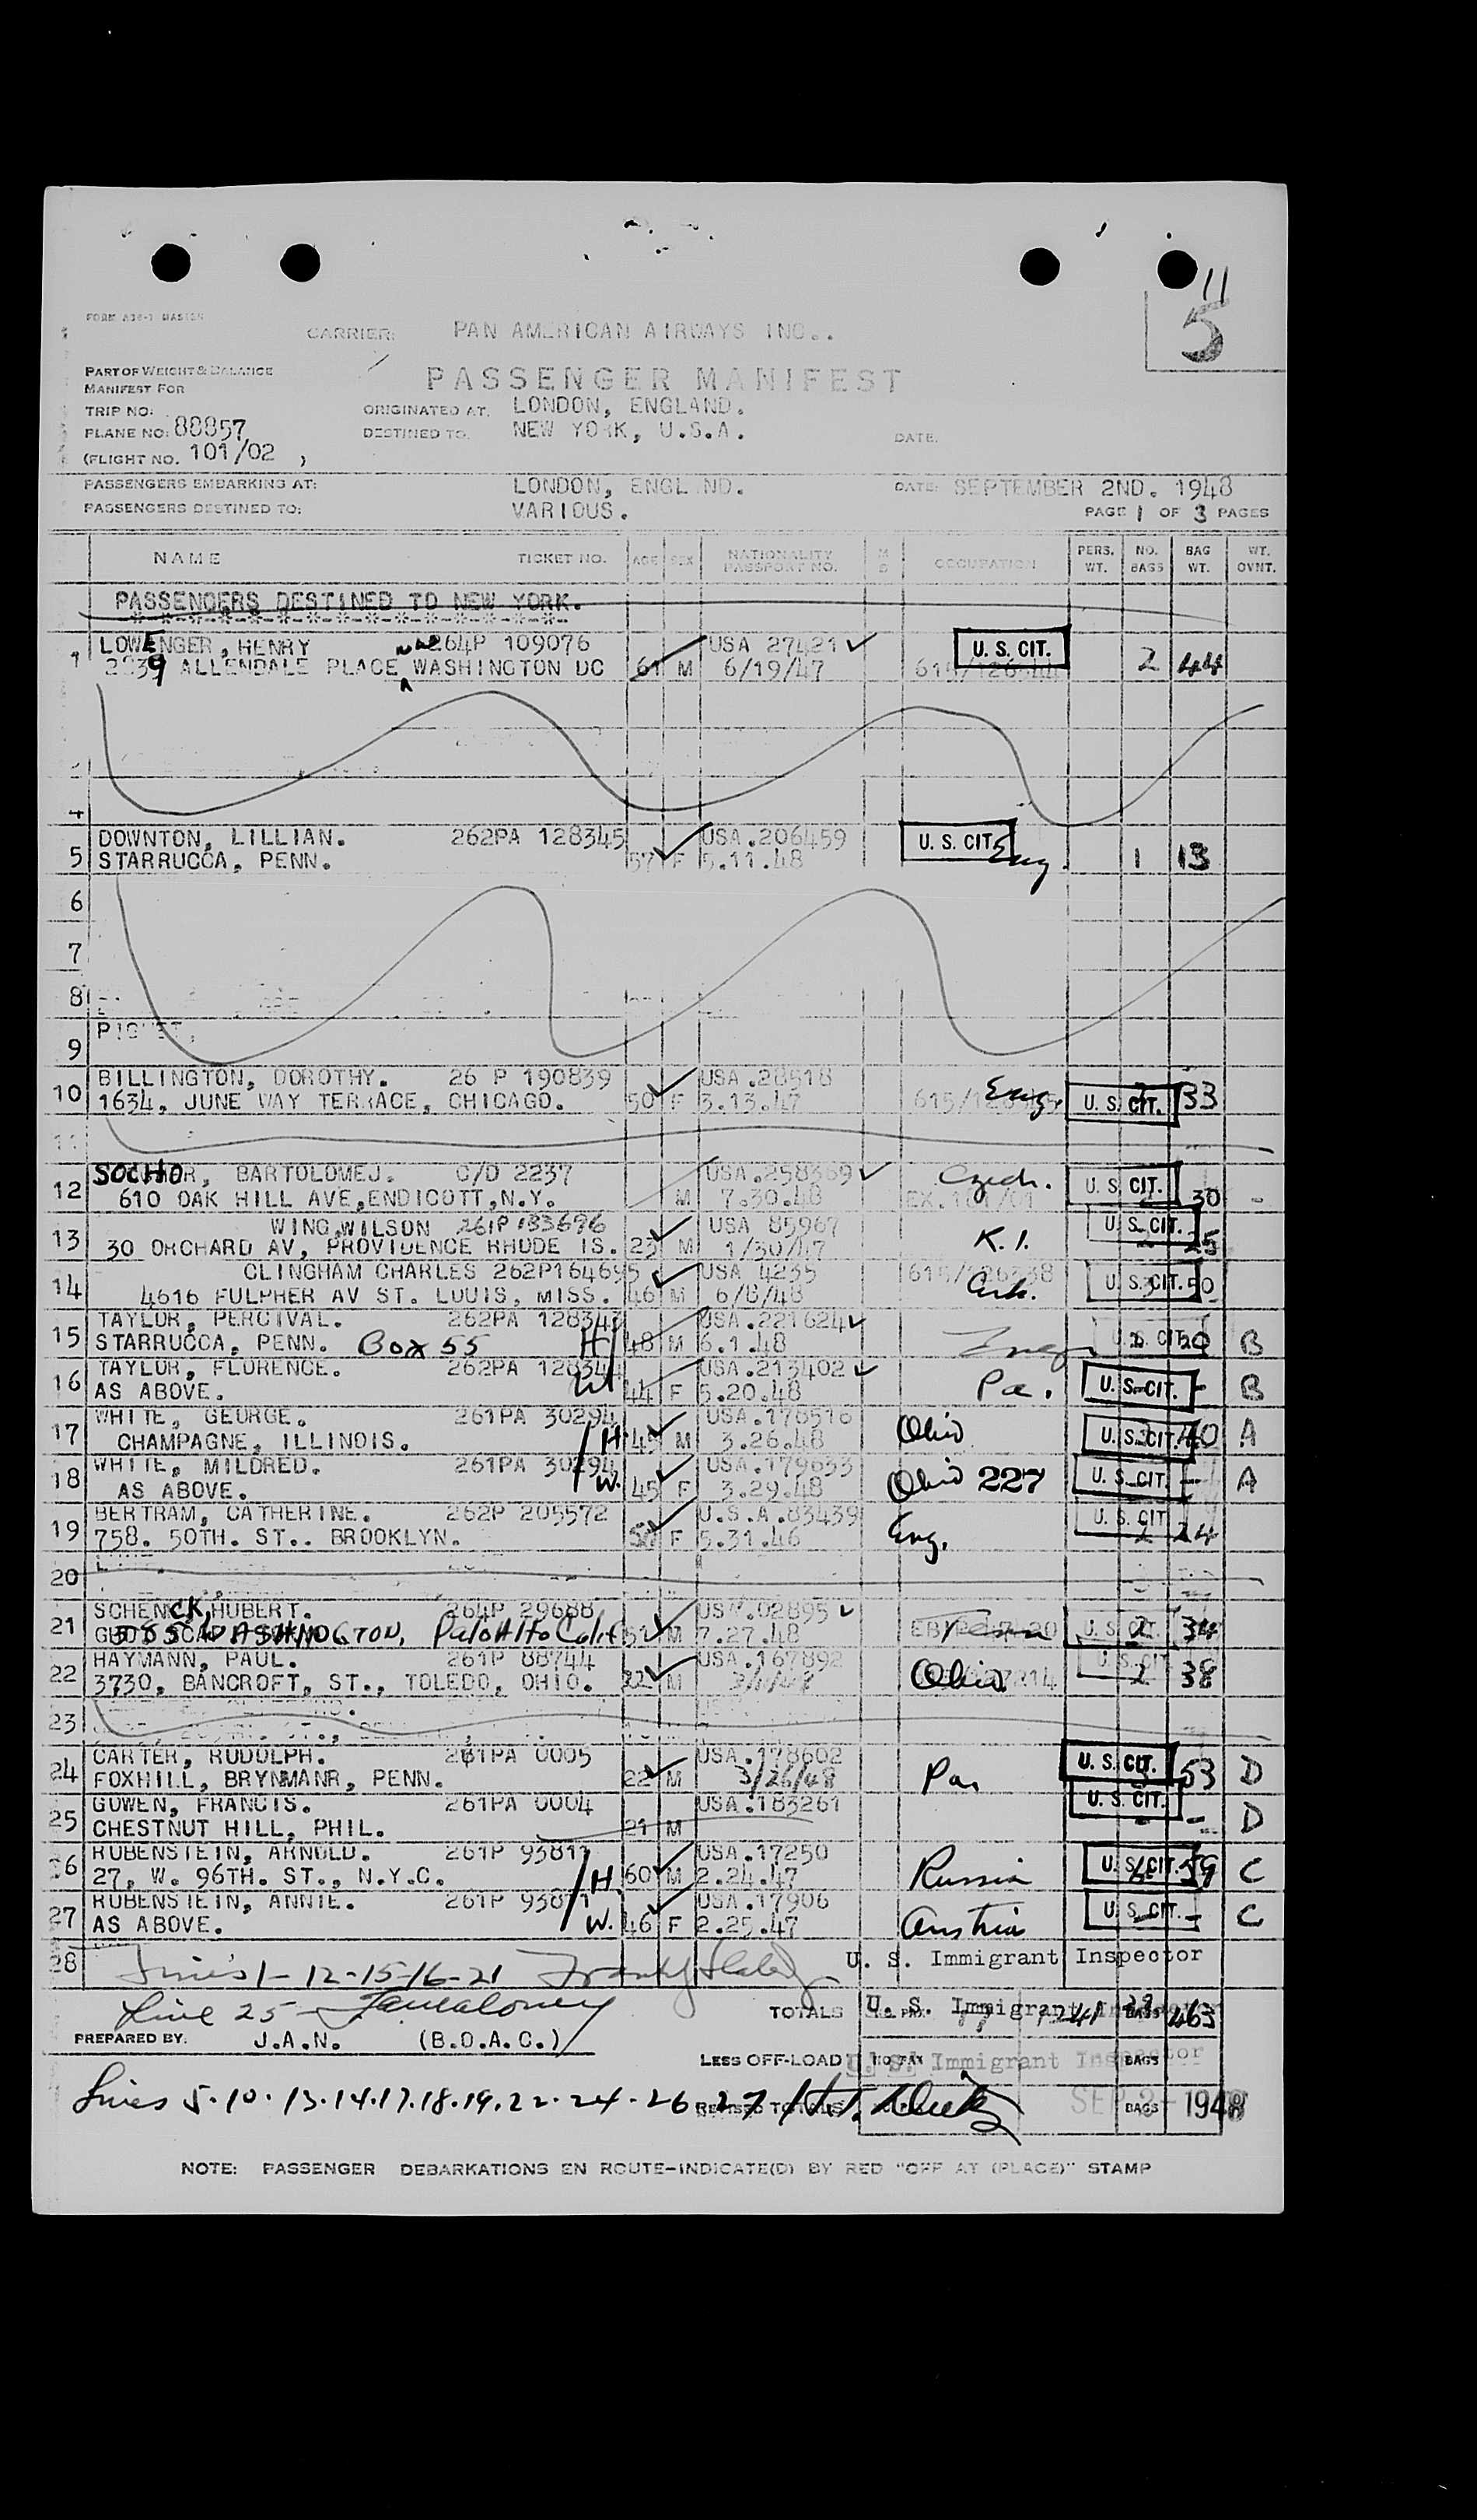 11
5
FORM
CARRIER: PAN AMERICAN AIRWAYS INC..
PART OF WEIGHT & BALANCE
MANIFEST FOR
PASSENGER MANIFEST
TRIP NO:
ORIGINATED AT. LONDON, ENGLAND.
PLANE NO: 88857
DESTINED TO. NEW YORK, U.S.A.
DATE.
(FLIGHT NO. 101/02 )
PASSENGERS EMBARKING AT: LONDON, ENGLAND. DATE: SEPTEMBER 2ND. 1948
PASSENGERS DESTINED TO: VARIOUS. PAGE 1 OF 3 PAGES
NAME TICKET NO. AGE SEX NATIONALITY PASSPORT NO. OCCUPATION PERS. WT. NO. BAGS BAG WT. WT. OVNT.
PASSENGERS DESTINED TO NEW YORK.
-*-*-*-*-*-*-*-*-*-*-*-*-*-*-*-
LOWENGER, HENRY 264P 109076 USA 27421 U. S. CIT.
1 2939 ALLENDALE PLACE NW WASHINGTON DC 61 M 6/19/47 2 44
4
DOWNTON, LILLIAN. 262PA 128345 USA.206459 U. S. CIT.
5 STARRUCCA, PENN. 57 F 5.11.48 Eng. 1 13
6
7
8
9
BILLINGTON, DOROTHY. 26 P 190839 USA.28518
10 1634, JUNE WAY TERRACE, CHICAGO. 50 F 3.13.47 Eng. U. S. CIT. 33
11
SOCHOR, BARTOLOMEJ. C/D 2237 USA.258369 Czech. U. S. CIT.
12 610 OAK HILL AVE,ENDICOTT,N.Y. M 7.30.48 EX.101/01 30 -
WING,WILSON 261P 133696 USA 85967 U. S. CIT.
13 30 ORCHARD AV, PROVIDENCE RHODE IS. 23 M 1/30/47 R.I. 25
CLINGHAM CHARLES 262P164695 USA 4235 615/126338
14 4616 FULPHER AV ST. LOUIS, MISS. 46 M 6/8/48 Ark. U. S. CIT. 50
TAYLOR, PERCIVAL. 262PA 128343 USA.221624
15 STARRUCCA, PENN. Box 55 H 48 M 6.1.48 U. S. CIT. 20 B
TAYLOR, FLORENCE. 262PA 128344 USA.213402
16 AS ABOVE. W 44 F 5.20.48 Pa. U. S. CIT. - B
WHITE, GEORGE. 261PA 30294 USA.178516
17 CHAMPAGNE, ILLINOIS. H. 45 M 3.26.48 Ohio U. S. CIT. 40 A
WHITE, MILDRED. 261PA 30294 USA.179633
18 AS ABOVE. W. 45 F 3.29.48 Ohio 227 U. S. CIT. - A
BERTRAM, CATHERINE. 262P 205572 U.S.A.83439 U. S. CIT.
19 758. 50TH. ST.. BROOKLYN. F 5.31.46 Eng. 2 24
20
SCHENCK, HUBERT. 264P 29688 USA.02895
21 WASHINGTON, Palo Alto Calif 51 M 7.27.48 U. S. CIT. 2 34
HAYMANN, PAUL. 261P 88744 USA.167892 U. S. CIT.
22 3730, BANCROFT, ST., TOLEDO, OHIO. 22 M Ohio 2 38
23
CARTER, RUDOLPH. 261PA 0005 USA.178602 U. S. CIT.
24 FOXHILL, BRYNMANR, PENN. 22 M 3/26/48 Pa. 53 D
GOWEN, FRANCIS. 261PA 0004 USA.183261 U. S. CIT.
25 CHESTNUT HILL, PHIL. 21 M - - D
RUBENSTEIN, ARNOLD. 261P 93811 USA.17250
26 27, W. 96TH. ST., N.Y.C. H. 60 M 2.24.47 Russia U. S. CIT. 59 C
RUBENSTEIN, ANNIE. 261P 93811 USA.17906
27 AS ABOVE. W. 46 F 2.25.47 Austria U. S. CIT. - C
28 Lines 1-12-15-16-21 U. S. Immigrant Inspector
Line 25 TOTALS U. S. Immigrant Inspector BAGS 463
PREPARED BY. J.A.N. (B.O.A.C.)
LESS OFF-LOAD U. S. Immigrant Inspector BAGS
Lines 5.10.13.14.17.18.19.22.24.26.27 REVISED TOTALS SEP 2 - 1948 BAGS
NOTE: PASSENGER DEBARKATIONS EN ROUTE-INDICATE(D) BY RED "OFF AT (PLACE)" STAMP